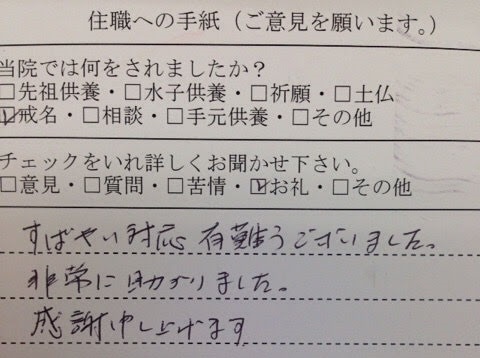 住職への手紙（ご意見を願います。）
当院では何をされましたか？
□先祖供養・□水子供養・□祈願・□土仏
☑戒名・□相談・□手元供養・□その他
チェックをいれ詳しくお聞かせ下さい。
□意見・□質問・□苦情・☑お礼・□その他
すばやい対応有難うございました。
非常に助かりました。
感謝申し上げます